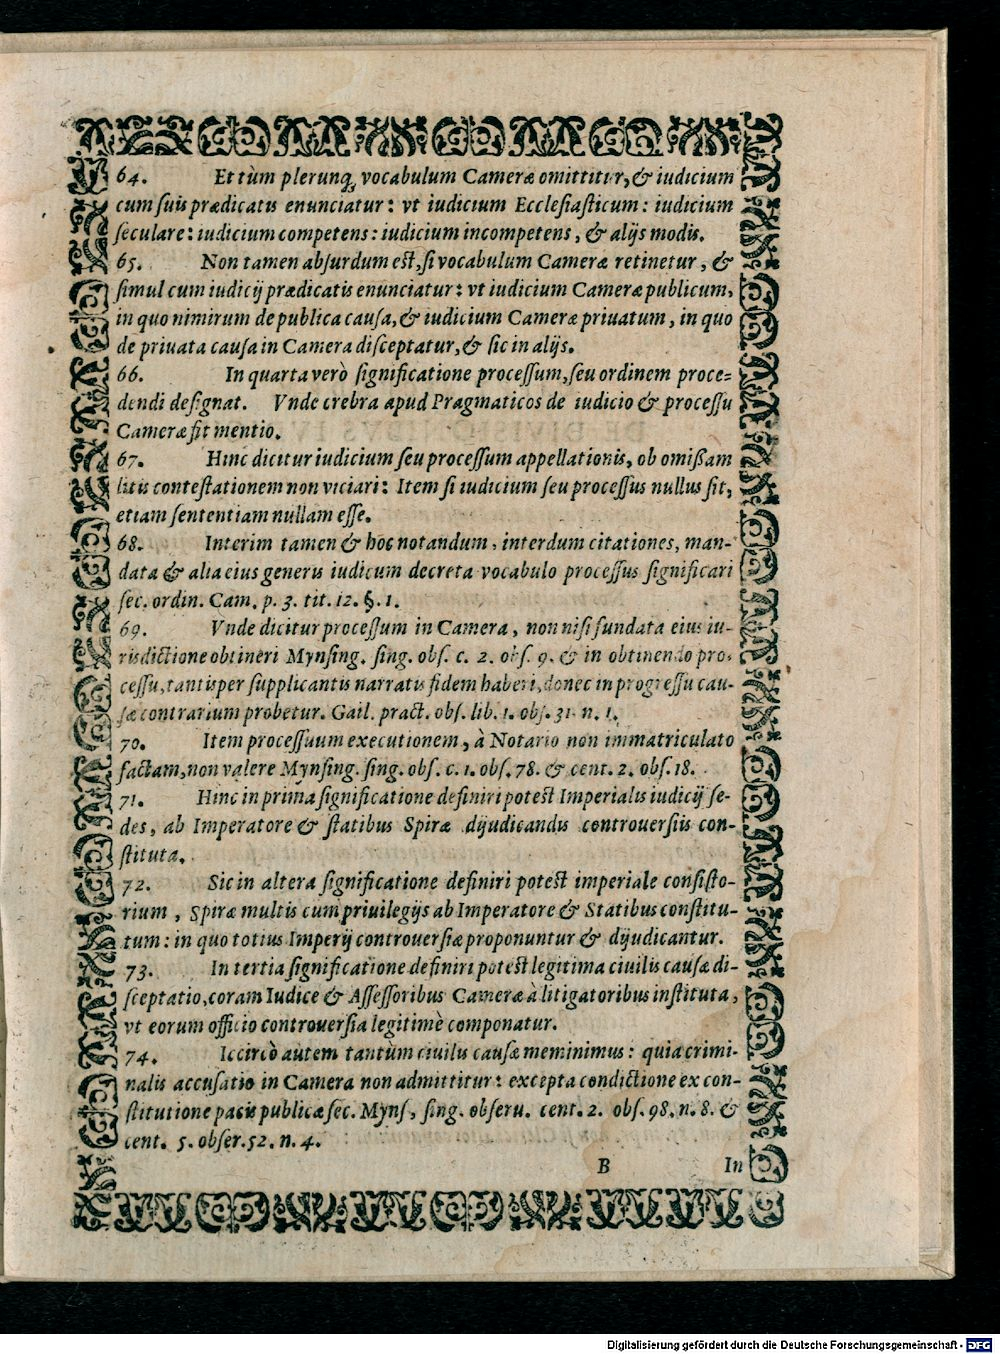 64. Et tum plerunq; vocabulum Cameræ omittitur, & iudicium
cum suis prædicatis enunciatur: vt iudicium Ecclesiasticum: iudicium
seculare: iudicium competens: iudicium incompetens, & alijs modis.
65. Non tamen absurdum est, si vocabulum Cameræ retinetur, &
simul cum iudicij prædicatis enunciatur: vt iudicium Cameræ publicum,
in quo nimirum de publica causa, & iudicium Cameræ priuatum, in quo
de priuata causa in Camera disceptatur, & sic in alijs.
66. In quarta verò significatione processum, seu ordinem proce=
dendi designat. Vnde crebra apud Pragmaticos de iudicio & processu
Cameræ fit mentio.
67. Hinc dicitur iudicium seu processum appellationis, ob omißam
litis contestationem non viciari: Item si iudicium seu processus nullus sit,
etiam sententiam nullam esse.
68. Interim tamen & hoc notandum, interdum citationes, man-
data & alia eius generis iudicum decreta vocabulo processus significari
sec. ordin. Cam. p. 3. tit. 12. §. 1.
69. Vnde dicitur processum in Camera, non nisi fundata eius iu-
risdictione obtineri Mynsing. sing. obs. c. 2. obs. 9. & in obtinendo pro-
cessu, tantisper supplicantis narratis fidem haberi, donec in progressu cau-
sæ contrarium probetur. Gail. pract. obs. lib. 1. obs. 31. n. 1.
70. Item processuum executionem, à Notario non immatriculato
factam, non valere Mynsing. sing. obs. c. 1. obs. 78. & cent. 2. obs. 18.
71. Hinc in prima significatione definiri potest Imperialis iudicij se-
des, ab Imperatore & statibus Spiræ dijudicandis controuersiis con-
stituta.
72. Sic in altera significatione definiri potest imperiale consisto-
rium, Spiræ multis cum priuilegijs ab Imperatore & Statibus constitu-
tum: in quo totius Imperij controuersiæ proponuntur & dijudicantur.
73. In tertia significatione definiri potest legitima ciuilis causæ di-
sceptatio, coram Iudice & Assessoribus Cameræ à litigatoribus instituta,
vt eorum officio controuersia legitimè componatur.
74. Iccircò autem tantùm ciuilis causæ meminimus: quia crimi-
nalis accusatio in Camera non admittitur: excepta condictione ex con-
stitutione pacis publicæ sec. Myns, sing. obseru. cent. 2. obs. 98. n. 8. &
cent. 5. obser. 52. n. 4.
B In
Digitalisierung gefördert durch die Deutsche Forschungsgemeinschaft - DFG